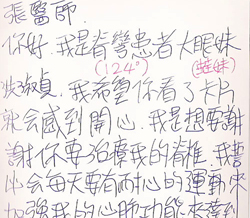 張醫師.
你好.我是脊彎患者大眼妹
(124°) (娃妹)
淑貞.我希望你看了卡片
就会感到開心.我是想要謝
謝你要治療我的脊椎.我
也会每天要有耐心的運動來
加強我的心肺功能來達到